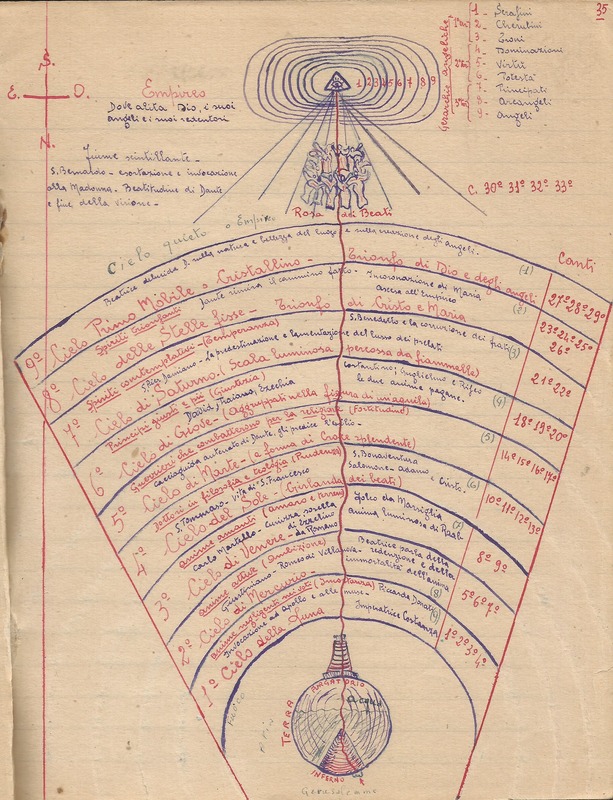 35
1 - Serafini
2 - Cherubini
3 - Troni
4 - Dominazioni
5 - Virtù
6 - Potestà
7 - Principati
8 - Arcangeli
9 - Angeli
Gerarchie angeliche
S.
E. O.
N.
Empireo
Dove abita Dio, i suoi
angeli e i suoi redentori
1 2 3 4 5 6 7 8 9
Fiume scintillante -
S. Bernardo - esortazione e invocazione
alla Madonna. Beatitudine di Dante
e fine della visione -
C. 30º 31º 32º 33º
Rosa dei Beati
Cielo quieto o Empireo
Beatrice delucida D. sulla natura e bellezza del luogo e sulla creazione degli angeli.
(1)
Canti
9º Cielo Primo Mobile o Cristallino - Trionfo di Dio e degli angeli
27º 28º 29º
Spiriti trionfanti
Dante rimira il cammino fatto - Incoronazione di Maria
Ascesa all'Empireo
(2)
8º Cielo delle Stelle fisse - Trionfo di Cristo e Maria
23º 24º 25º
26º
Spiriti contemplativi - (Temperanza)
S. Pier Damiano - La predestinazione e lamentazione del lusso dei prelati
S. Benedetto e la corruzione dei frati
(3)
7º Cielo di Saturno (Scala luminosa percossa da fiammelle)
21º 22º
Principi giusti e pii (Giustizia)
David, Traiano, Ezechia
Costantino; Guglielmo e Rifeo
le due anime pagane.
(4)
6º Cielo di Giove - (Aggruppati nella figura di un'aquila)
18º 19º 20º
Guerrieri che combatterono per la religione (Fortitudine)
Cacciaguida antenato di Dante, gli predice l'esilio -
(5)
5º Cielo di Marte - (a forma di Croce splendente)
14º 15º 16º 17º
Dottori in filosofia e teologia (Prudenza)
S. Tommaso - Vita di S. Francesco
S. Bonaventura
Salomone - Adamo e Cristo.
(6)
4º Cielo del Sole - (Ghirlanda dei beati)
10º 11º 12º 13º
anime amanti (amore terreno)
Carlo Martello - Cunizza sorella
di Ezzelino
da Romano
Folco da Marsiglia
Anima luminosa di Raab
(7)
3º Cielo di Venere -
8º 9º
anime attive (ambizione)
Giustiniano - Romeo di Villanova -
Beatrice parla della
redenzione e della
immortalità dell'anima
(8)
2º Cielo di Mercurio -
5º 6º 7º
anime negligenti nei voti (Incostanza)
Invocazione ad Apollo e alle muse -
Piccarda Donati
Imperatrice Costanza
(9)
1º Cielo della Luna
1º 2º 3º 4º
PURGATORIO
TERRA
acqua
INFERNO
Gerusalemme